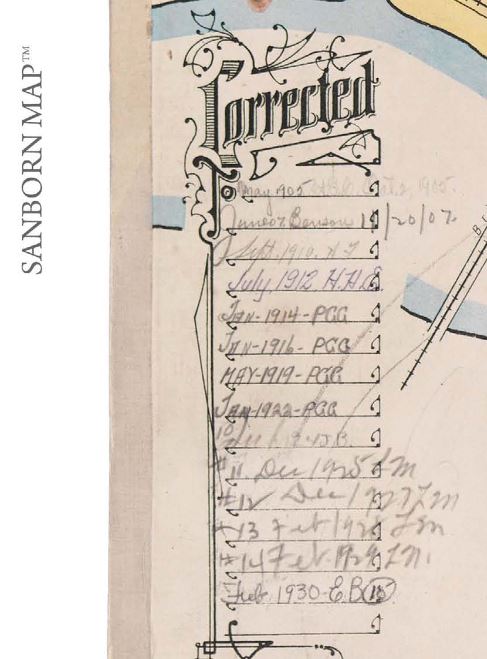 SANBORN MAP™
Corrected
To May 1905 H.B.C. Oct. 2, 1905.
Junior Benson 11/20/07.
Sept. 1910.
July 1912 H.H.S.
JAN-1914-PGG
JAN-1916-PGG
MAY-1919-PGG
JAN-1922-PGG
10 J.B.
#11 Dec 1925 LM
#12 Dec 1927 LM
#13 Feb 1928 LM
#14 Feb. 1929 LM.
Feb. 1930-E.B. 15